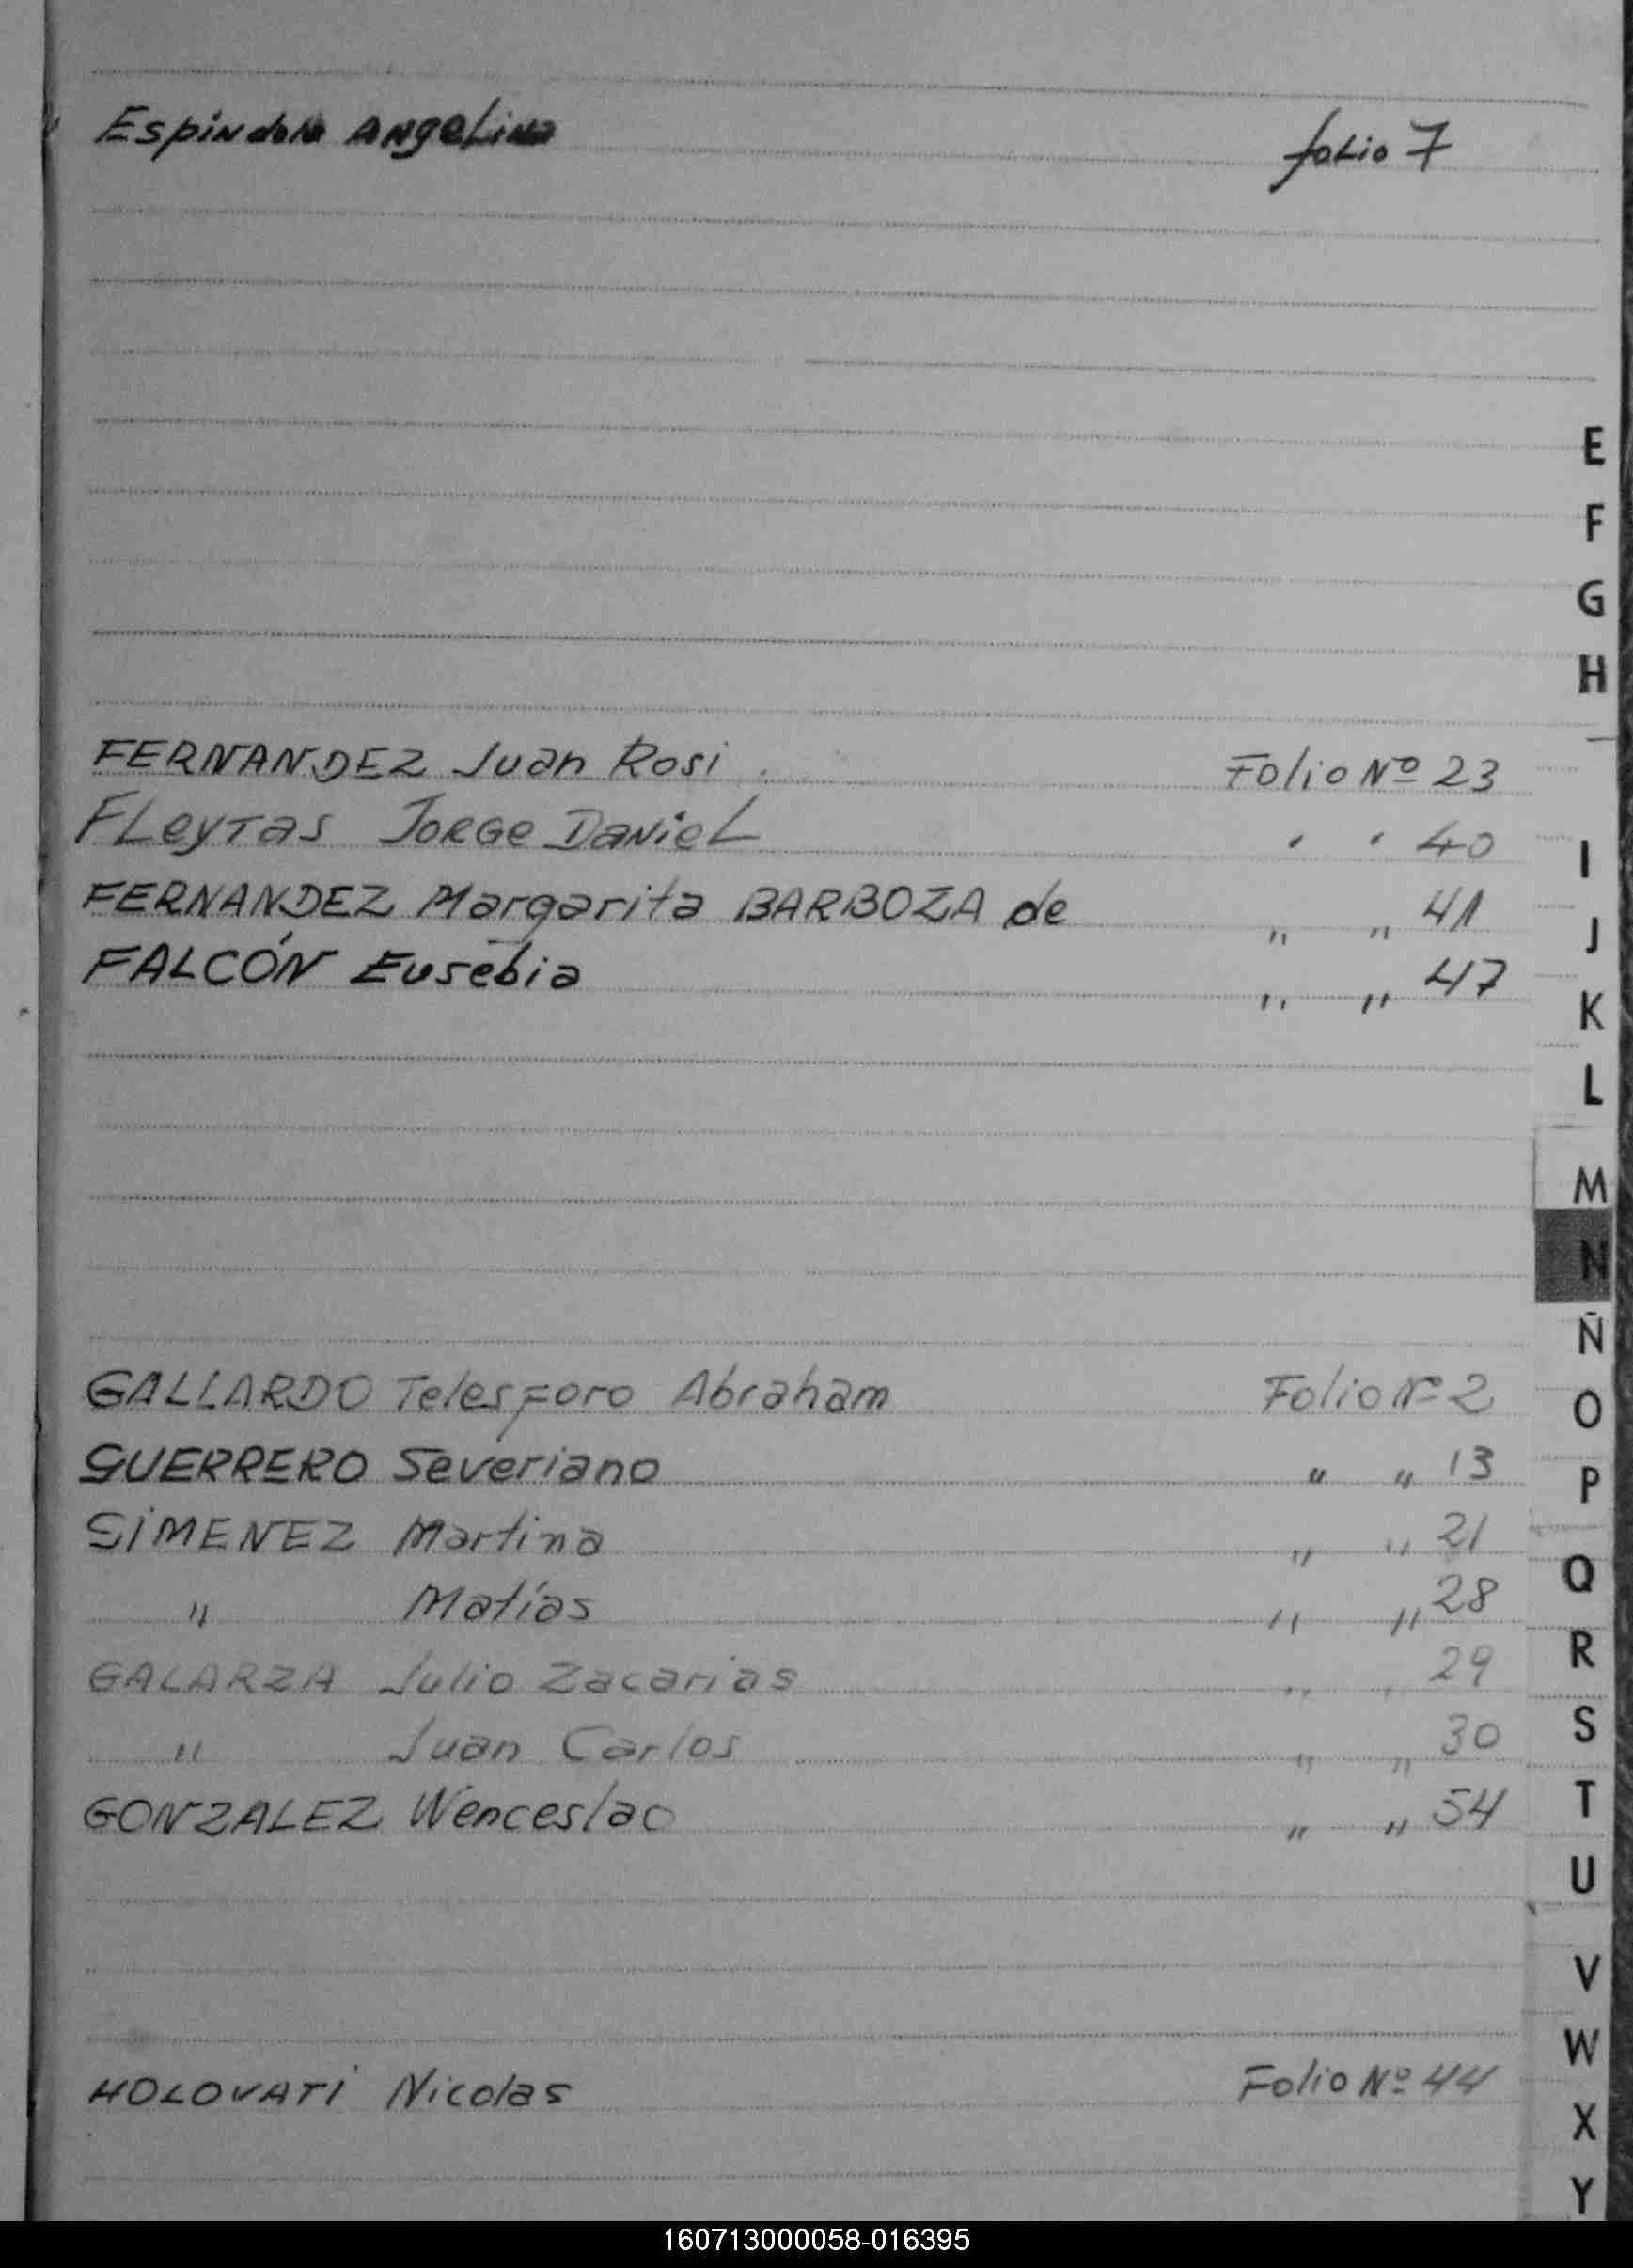 Espindola Angelina folio 7
FERNANDEZ Juan Rosi. Folio Nº 23
FLeyTas JORGe DanieL " " 40
FERNANDEZ Margarita BARBOZA de " " 41
FALCÓN Eusebia " " 47
GALLARDO Telesforo Abraham Folio Nº 2
GUERRERO Severiano " " 13
GIMENEZ Martina " " 21
" Matías " " 28
GALARZA Julio Zacarias " " 29
" Juan Carlos " " 30
GONZALEZ Wenceslao " " 54
HOLOVATI Nicolas Folio Nº 44
E
F
G
H
I
J
K
L
M
N
Ñ
O
P
Q
R
S
T
U
V
W
X
Y
160713000058-016395